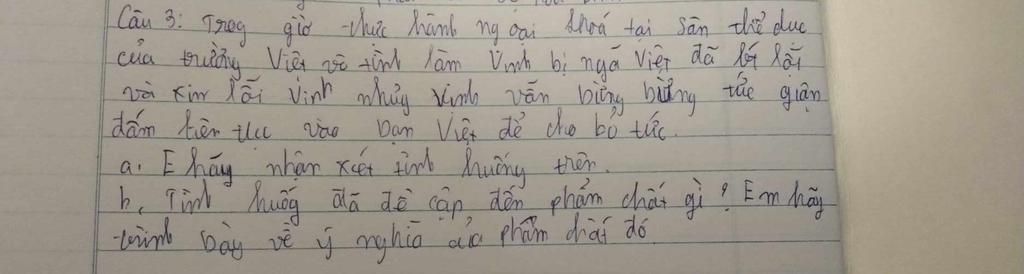 Câu 3: Trog giờ thức hành ngoại khoá tại sân thể dục
của trường Việt vô tình làm Vinh bị ngã Việt đã lối lỗi
và xin lỗi Vinh nhưg Vinh vẫn bừng bừng tức giận
đấm liên tục vào bạn Việt để cho bỏ tức.
a. E hãy nhận xét tình huống trên.
b, Tình huốg đã đề cập đến phẩm chất gì? Em hãy
trình bày về ý nghĩa của phẩm chất đó